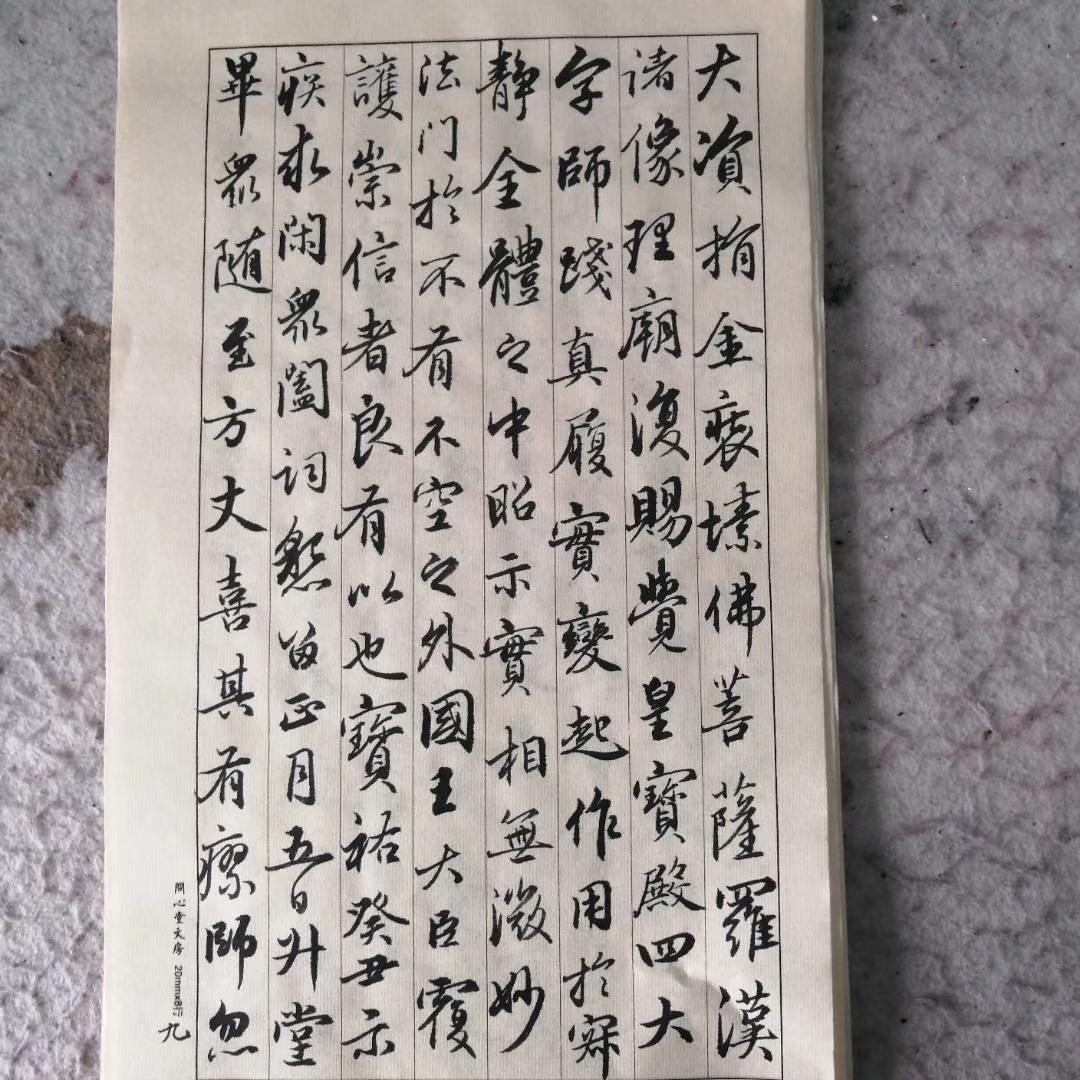 大資捐金裝塐佛菩薩羅漢
诸像理廟復賜覺皇寶殿四大
字師踐真履實變起作用於寂
静全體之中昭示實相無微妙
法门於不有不空之外國王大臣覆
護崇信者良有以也寶祐癸丑示
疾求閑衆闔词懇留正月五日升堂
畢衆随至方丈喜其有瘳師忽
問心堂文房 20mmx8行
九